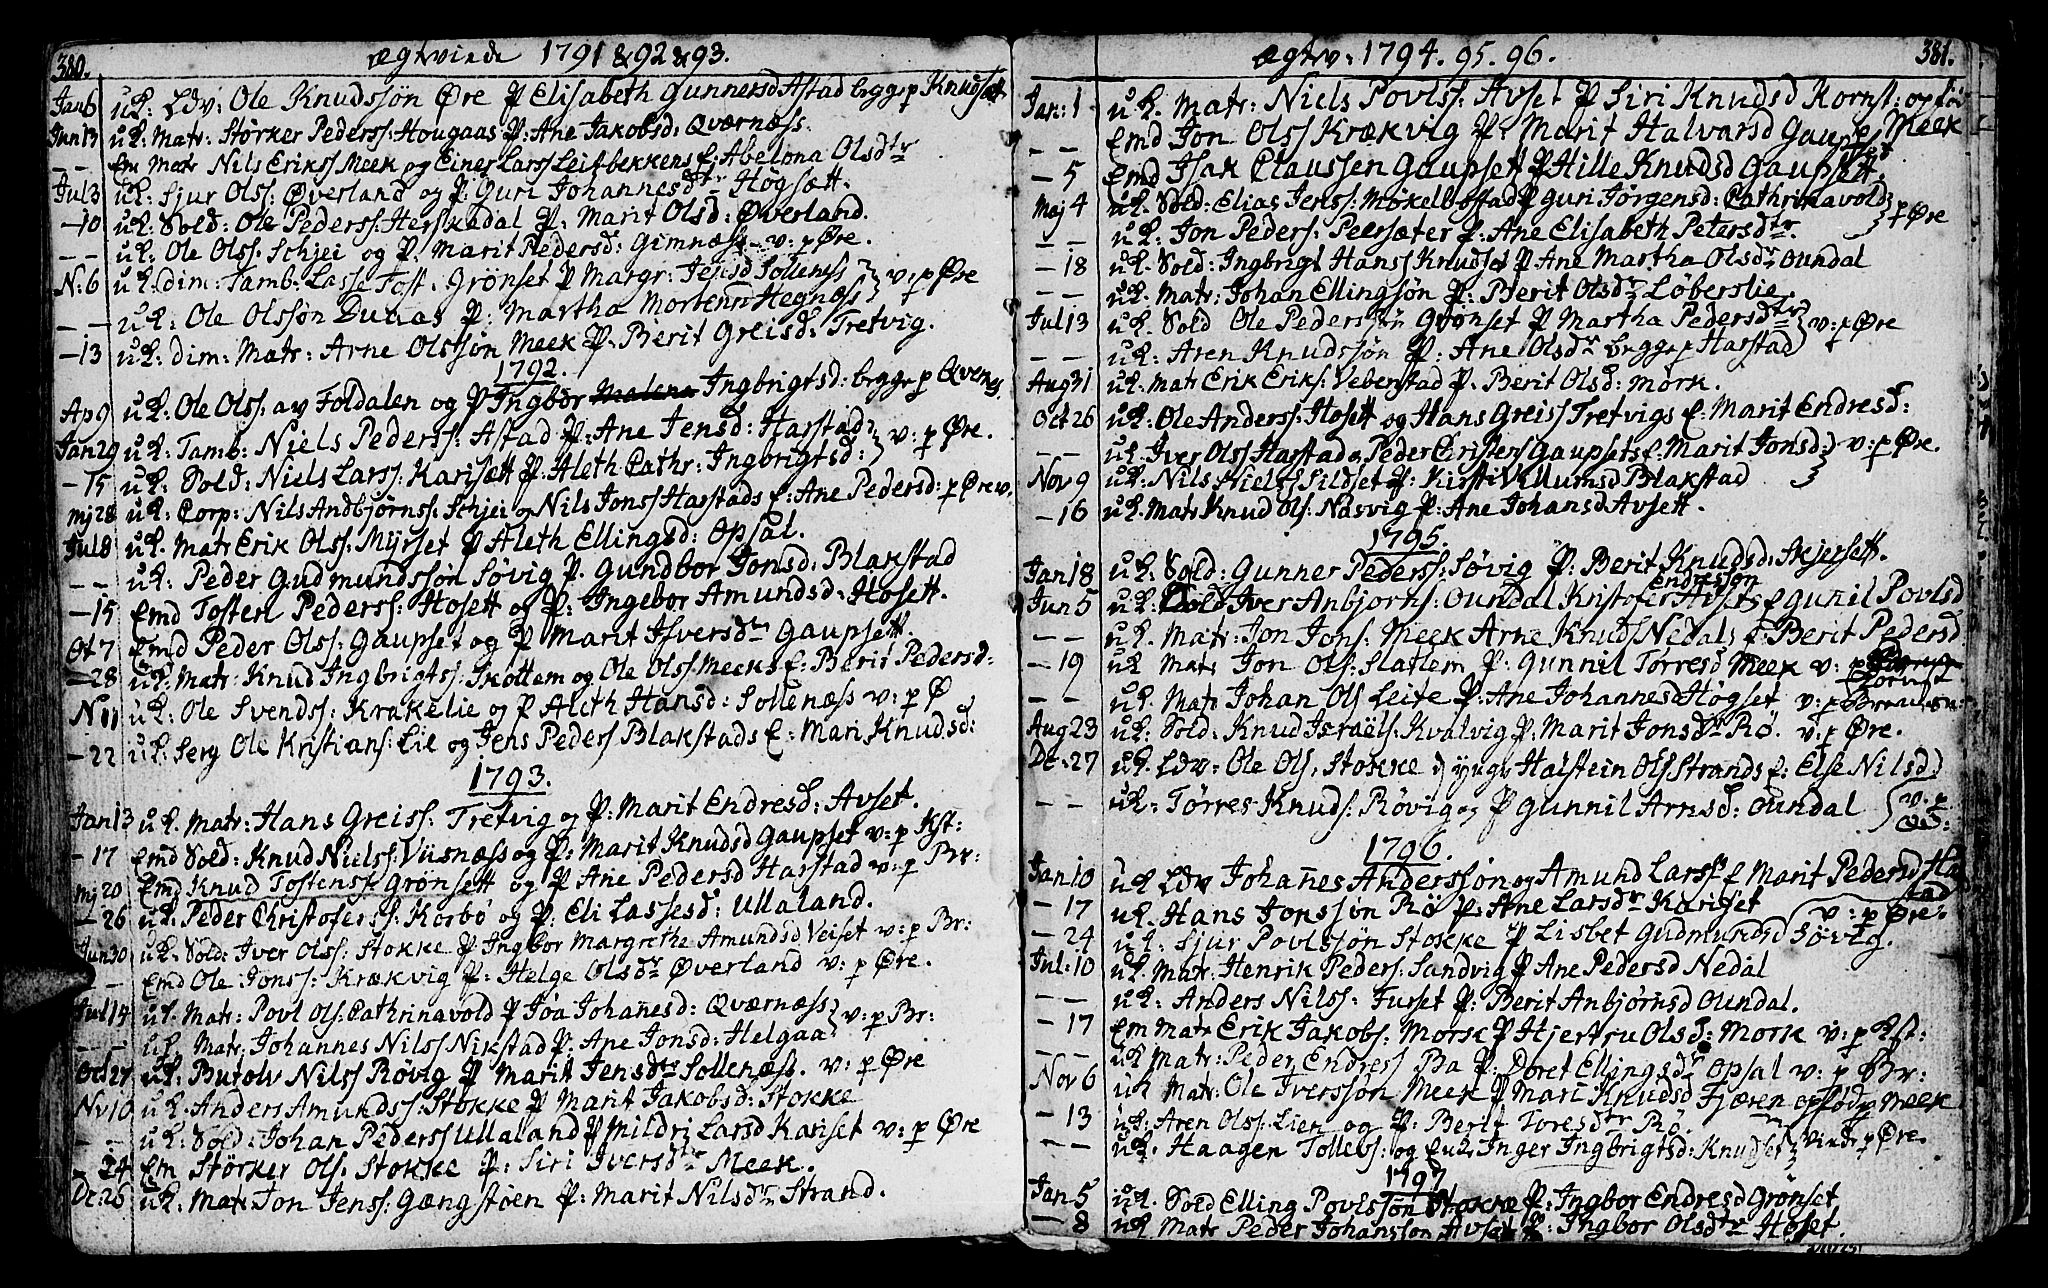 380. ægtviede 1791 & 92 & 93.
Jan 6 uk: Ldv: Ole Knudssøn Øre P Elisabeth Gunnersd Astad begge p Knudset
Jun 13 uk: Matr: Størker Pederss: Hougaas P: Ane Jakobsd: Qværnæss.
— — Em Matr Nils Erikss Meek og Einer Larss Leitbekkens E: Abelona Olsdtr
Jul 3 uk: Sjur Olss: Øverland og P: Guri Johannesdtr Høgsætt.
— 10 uk: Sold: Ole Pederss: Herskedal P: Marit Olsd: Øverland.
— — uk: Ole Olss: Schjei og P. Marit Pedersd: Gimnæss v: p Øre.
N: 6 uk: dim: Tamb: Lasse Tost: Grønset P Margr: Jensd Solleness } v: p Øre
— — uk: Ole Olssøn Dunas P: Martha Mortensd Hegnæss
— 13 uk: dim: Matr: Arne Olssøn Meek P: Berit Greisd: Tretvig.
1792.
Ap 9 uk: Ole Olss: av Foldalen og P Ingbor Malena Ingbrigtsd: begge p Qvenes.
Jan 29 uk: Tamb: Niels Pederss: Astad P: Ane Jensd: Harstad } v: p Øre.
— 15 uk: Sold: Niels Larss: Karisett P: Aleth Cathr: Ingbrigtsd:
Mj 28 uk: Corp: Nils Andbjørnss: Schjei og Nils Jonss Harstads E: Ane Pedersd: p Øre v.
Jul 8 uk. Matr Erik Olss: Myrset P Aleth Ellingsd: Opsal.
— — uk: Peder Gudmundssøn Søvig P: Gundbor Jonsd: Blakstad
— 15 Emd Tosten Pederss: Hosett og P: Ingebor Amundsd: Hosett.
Ot 7 Emd Peder Olss: Gaupset og P Marit Iversdtr Gaupsett
— 28 uk: Matr: Knud Ingbrigts: Skottem og Ole Olss: Meeks E: Berit Pedersd:
N 11 uk: Ole Svendss: Krakelie og P Aleth Hansd: Sollenæss v: p Ø
— 22 uk: Serg Ole Kristians: Lie og Jens Peders Blakstads E: Mari Knudsd:
1793.
Jan 13 uk. Matr: Hans Greiss: Tretvig og P: Marit Endresd: Avset.
— 17 Emd Sold: Knud Nielss: Viisnæss og P: Marit Knudsd Gaupset v: p Kst:
Mj 20 Emd Knud Tostenss: Grønsett og P Ane Pedersd Harstad v: p Br:
— 26 uk: Peder Christoferss: Korbø og P: Eli Lassesd: Ullaland.
Jun 30 uk: Sold: Iver Olss: Stokke P Ingbor Margrethe Amundsd Veiset v: p Br:
— — Emd Ole Jonss: Krækvig P: Helge Olsdtr Øverland v: p Øre.
Jul 14 uk. Matr: Povl Ols: Cathrinavold P Joa Johanesd: Qværnæss } v: p Br:
— — uk Matr: Johannes Nilss Nikstad P: Ane Jonsd: Helgaa
Oct 27 uk: Butolv Nilss Røvig P Marit Jensdtr Sollenæss. v: p Øre
Nv 10 uk. Anders Amundss: Stokke P Marit Jakobsd: Stokke
— — uk: Sold: Johan Pederss Ullaland P Mildri Larsd Kariset v: p Øre
— 24 Em Størker Ols: Stokke P: Siri Iversdtr Meek.
Dc 26 uk: Matr Jon Jenss: Gængstøen P: Marit Nilsdtr Strand.
ægtv: 1794. 95. 96. 381.
Jan: 1 uk. Matr: Niels Povlss: Avset P Siri Knudsd Kornst: opfød
— — Emd Jon Olss Krækvig P: Marit Halvarsd Gaupset Meek
— 5 Emd Isak Claussen Gaupset P Hille Knudsd Gaupset.
Mej 4 uk: Sold: Elias Jens: Mokelbostad P Guri Jørgensd: Cathrinavold } p Øre
— — uk: Jon Peders: Peersæter P: Ane Elisabeth Petersdtr
— 18 uk: Sold: Ingbrigt Hanss Knudset P Ane Martha Olsdtr Oundal
— — uk. Matr: Johan Ellingsøn P: Berit Olsdtr Løberslie.
Jul 13 uk. Sold Ole Pederssøn Grønset P Martha Pedersdtr } v: p Øre
— — uk: Aren Knudssøn P: Ane Olsdtr begge p Harstad
Aug 31 uk. Matr Erik Eriks: Veberstad P. Berit Olsd: Mork.
Oct 26 uk: Ole Anderss: Hosett og Hans Greiss Tretvigs E: Marit Endresd:
— — uk Iver Olss Harstad og Peder Eristers Gaupsets E: Marit Jonsd: } v: p Øre.
Nov 9 uk: Nils Nielss Sildset P: Kirsti Villumsd Blakstad
— 16 uk. Matr Knud Ols: Næsvig P: Ane Johansd Avsett.
1795.
Jan 18 uk: Sold: Gunner Pederss: Søvig P: Berit Knudsd: Skjersett.
Jun 5 uk: Sold Iver Anbjorns: Oundal Kristofer Endressøn Avsets E Gunil Povlsd
— — uk. Matr: Jon Jons: Meek Arne Knuds Nedals E: Berit Pedersd
— 19 uk Matr Jon Ols: Slatlem P: Gunnil Torresd Meek v: p Kornst.
— — uk: Matr Johan Ols Leite P: Ane Johannesd Høgset v: p Bræmsn:
Aug 23 uk: Sold: Knud Israëls: Kvalvig P: Marit Jonsdtr Rø. v: p Øre.
Dc. 27 uk: Ldv: Ole Ols. Stokke og yngs Halstein Ols Strands E: Else Nilsd
— — uk: Tørres Knuds: Røvig og P Gunnil Arnsd: Oundal { v: p Øre:
1796.
Jan 10 uk Ldv Johannes Anderssøn og Amund Larss: E Marit Pedersd Harstad
— 17 uk. Hans Jonssøn Rø P: Ane Larsdtr Kariset v: p Øre.
— 24 uk: Sjur Povlssøn Stokke P Lisbet Gudmundsd Søvig.
Jul: 10 uk. Matr: Henrik Peders: Sandvig P Ane Pedersd Nedal
— — uk: Anders Nilss: Furset P: Berit Anbjørnsd Oundal.
— 17 Em Matr Erik Jakobs: Morsk P Hjertru Olsd: Mork v: p Kst:
— — uk Matr: Peder Endress Ba P: Doret Ellingsdtr Opsal v: p Br:
Nov 6 uk Matr: Ole Iverssøn Meek P Mari Knudsd Fjæren opfød p Meek
— 13 uk: Aren Olss: Lien og P: Berit Toresdtr Rø.
— — uk. Haagen Tollevs: og P uk: Inger Ingbrigtsd: Knudset } viede p Øre.
1797
Jan 5 uk. Sold Elling Povlssøn Stokke P: Ingbor Endresd Grønset
— 8 uk Matr Peder Johanssøn Avset P: Ingbor Olsdtr Hoset.